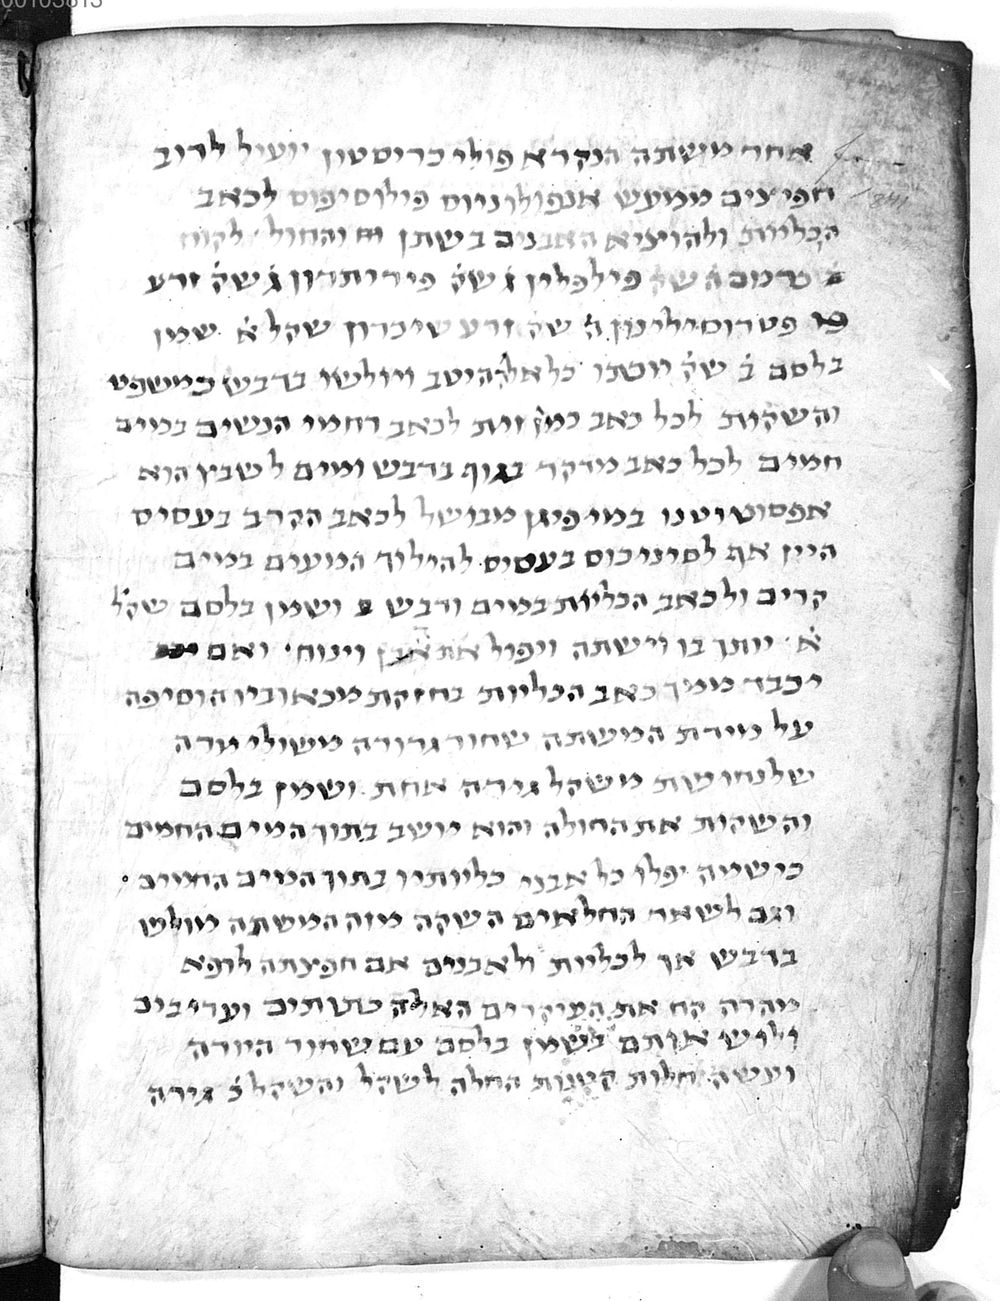 אחר משתה הנקרא פולי כריסטון יועיל לרוב
חפיצים ממעש אנפולוניוס פילוסיפוס לכאב
הכליות ולהוציא האבנים בשתן והחול לקוח
כרמום ה שק פילפלין ג שק פיריתרון ג שק זרע
פטרוסילינון ה שק זרע שיכרון שקל א שמן
בלסם ב שק יוכתו כל אלה היטב וילושו בדבש כמשפט
והשקות לכל כאב כמין זית לכאב רחמי הנשים במים
חמים לכל כאב מדקר בגוף בדבש ומים לשבץ הוא
במי פיגן מבושל לכאב הקרב בעסיס
היין אף לסיניכוס בעסיס להילוך המעים במים
קרים ולכאב הכליות במים ודבש ושמן בלסם שקל
א יותך בו וישתה ויפול את אבן וינוח ואם
יכבד ממך כאב הכליות בחזקת מכאוביו הוסיפה
על מידת המשתה שחור גרודה משולי יורה
של נחושת משקל גירה אחת ושמן בלסם
והשקות את החולה והוא יושב בתוך המים החמים
כי שמה יפלו כל אבני כליותיו בתוך המים החמים
וגם לשאר החלאים השקה מזה המשתה מולש
בדבש אך לכליות ולאבנים אם חפצתה לרפא
מהרה קח את העיקרים האלה כתותים וערבים
ולוש אותם בשמן בלסם עם שחור היורה
ועשה חלות קטנות החלה לשקל והשקל כ גירה